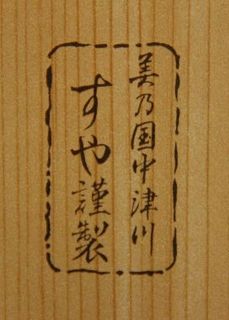 美乃国中津川
すや謹製